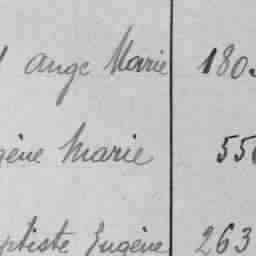 ange Marie 180
gène Marie 55
ptiste Eugène 263